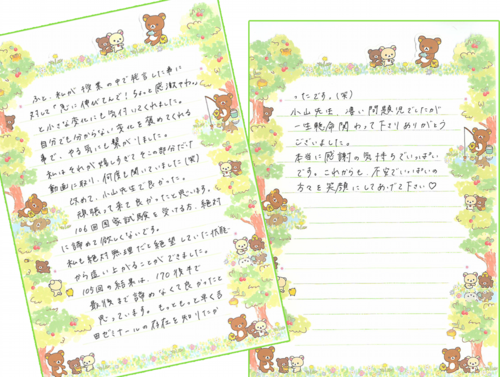 ふと、私が授業の中で発言した事に
対して「思い伸びてんで!ちょっと感激やわ。」
と小さな変化にも気付いてくれました。
自分でも分からない変化を褒めてくれる
事で、やる気にも繋がりました。
私はそれが嬉しすぎてそこの部分だけ
動画に取り、何度も聞いていました(笑)
改めて、小山先生で良かった。
頑張って来て良かったと思います。
106回国家試験を受ける方、絶対
に諦めて欲しくないです。
私も絶対無理だと絶望していた状態
から這い上がることができました。
105回の結果は、170後半で
最後まで諦めなくて良かったと
思っています。もっともっと早く吉
田ゼミナールの存在を知りたか
ったです。(笑)
小山先生、凄い問題児でしたが
一生懸命関わって下さりありがとう
ございました。
本当に感謝の気持ちでいっぱい
です。これからも、不安でいっぱいの
方々を笑顔にしてあげて下さい♡